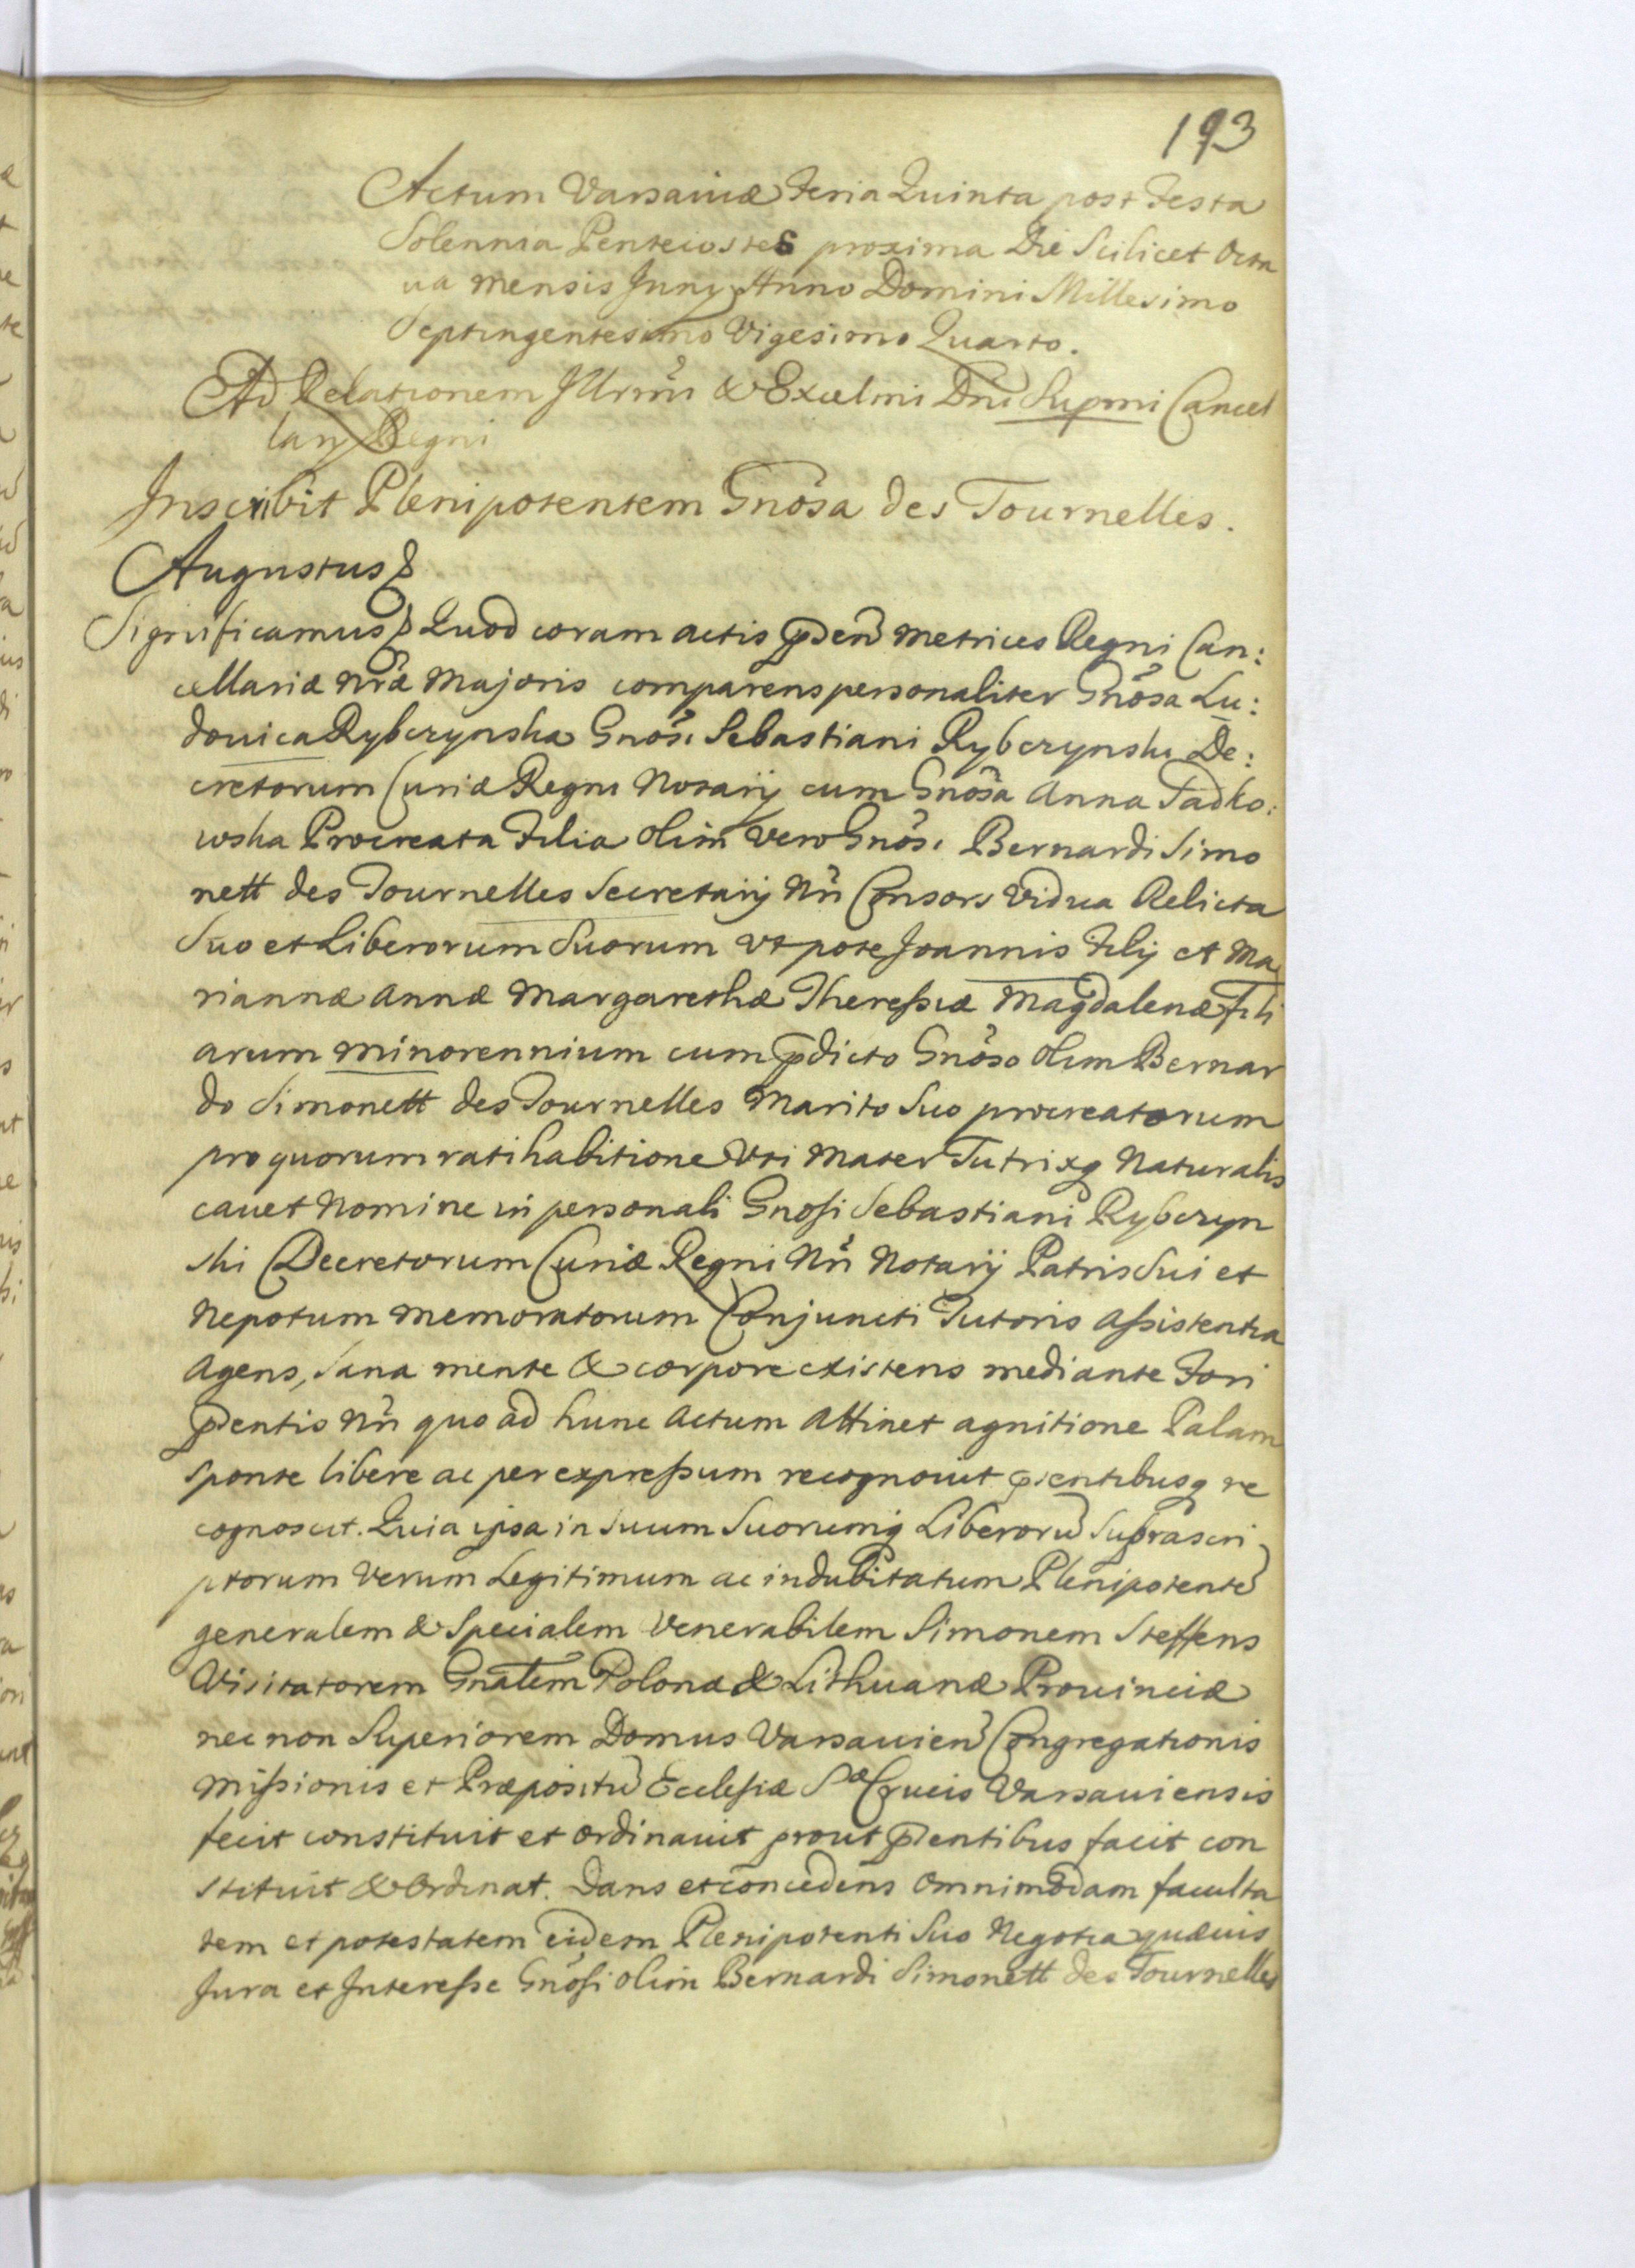 193
Actum Varsaviæ Feria Quinta post Festa
Solennia Pentecostes proxima Die Scilicet Octa
va mensis Junij Anno Domini Millesimo
Septingentesimo Vigesimo Quarto.
Ad Relationem Illrmi & Excelmi Dni Supmi Cancel
larij Regni
Inscribit Plenipotentem Gnosa des Tournelles.
Augustus &
Significamus & Quod coram actis pden Metrices Regni Can:
cellariæ Nræ Majoris comparens personaliter Gnosa Lu:
douica Rybczynska Gnosi Sebastiani Rybczynski De:
cretorum Curiæ Regni Notarij cum Gnosa Anna Tadko:
wska Procreata Filia olim vero Gnosi Bernardi Simo
nett des Tournelles Secretarij Nri Consors Vidua Relicta
Suo et Liberorum Suorum Utpote Joannis Filij et Ma
riannæ Annæ Margarethæ Theressiæ Magdalenæ Fili
arum minorennium cum pdicto Gnoso olim Bernar
do Simonett des Tournelles Marito Suo procreatorum
pro quorum ratihabitione Uti Mater Tutrixq Naturalis
cauet Nomine in personali Gnosi Sebastiani Rybczyn
ski Decretorum Curiæ Regni Nri Notarij Patris Sui et
Nepotum memoratorum Conjuncti Tutoris Assistentia
Agens, Sana mente & corpore existens mediante Fori
pdentis Nri quo ad hunc Actum Attinet agnitione Palam
sponte libere ac per expressum recognouit psentibusq re
cognoscit. Quia ipsa in Suum Suorumq Liberorū Suprascri
ptorum Verum Legitimum ac indubitatum Plenipotentē
generalem & Specialem Venerabilem Simonem Steffens
Visitatorem Gnalem Polonæ & Lithuanæ Prouinciæ
nec non Superiorem Domus Varsauien Congregationis
Missionis et Præpositū Ecclesiæ Sæ Crucis Varsauiensis
fecit constituit et ordinauit prout pdentibus facit con
stituit & Ordinat. Dans et concedens omnimodam faculta
tem et potestatem eidem Plenipotenti Suo Negotia quæuis
Jura et Interesse Gnosi olim Bernardi Simonett des Tournelles